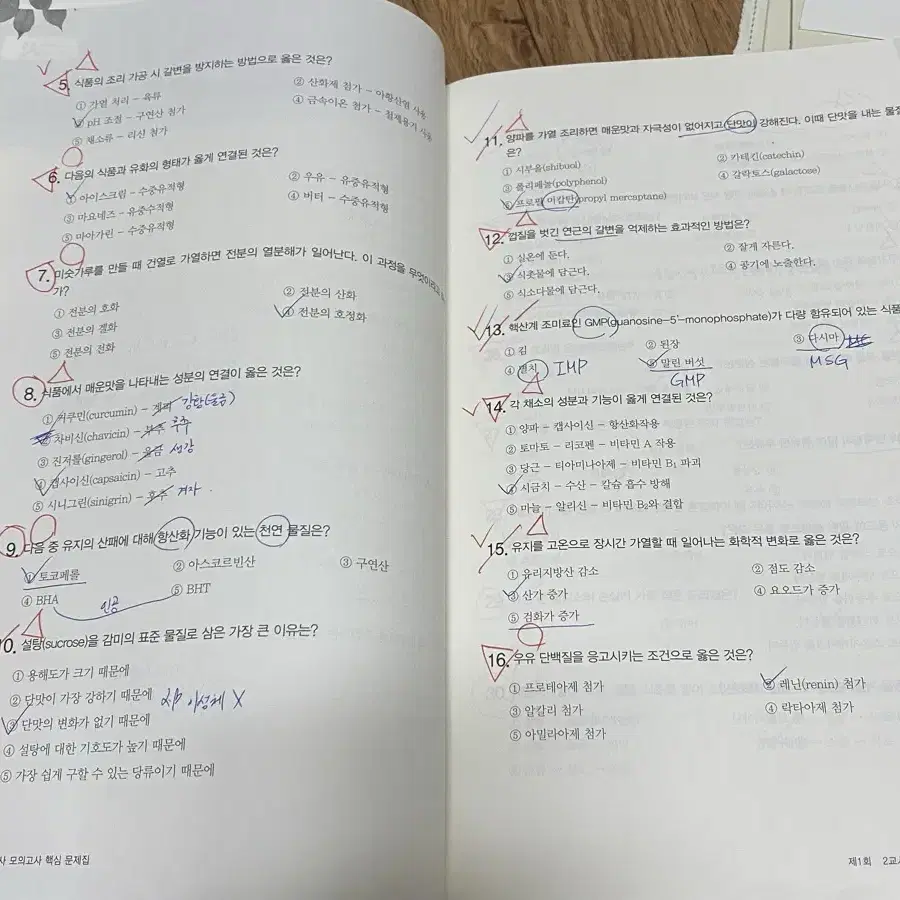 5. 식품의 조리 가공 시 갈변을 방지하는 방법으로 옳은 것은?
① 가열 처리 – 육류
② 산화제 첨가 – 아황산염 사용
③ pH 조절 – 구연산 첨가
④ 금속이온 첨가 – 철제용기 사용
⑤ 채소류 – 리신 첨가
6. 다음의 식품과 유화의 형태가 옳게 연결된 것은?
① 아이스크림 – 수중유적형
② 우유 – 유중유적형
③ 마요네즈 – 유중수적형
④ 버터 – 수중유적형
⑤ 마가린 – 수중유적형
7. 미숫가루를 만들 때 건열로 가열하면 전분의 열분해가 일어난다. 이 과정을 무엇이라고
가?
① 전분의 호화
② 전분의 산화
③ 전분의 겔화
④ 전분의 호정화
⑤ 전분의 전화
8. 식품에서 매운맛을 나타내는 성분의 연결이 옳은 것은?
① 커쿠민(curcumin) – 계피 강황(울금)
② 차비신(chavicin) – 부추 후추
③ 진저롤(gingerol) – 울금 생강
④ 캡사이신(capsaicin) – 고추
⑤ 시니그린(sinigrin) – 후추 겨자
9. 다음 중 유지의 산패에 대해 항산화 기능이 있는 천연 물질은?
① 토코페롤
② 아스코르빈산
③ 구연산
④ BHA
⑤ BHT
인공
10. 설탕(sucrose)을 감미의 표준 물질로 삼은 가장 큰 이유는?
① 용해도가 크기 때문에
② 단맛이 가장 강하기 때문에
③ 단맛의 변화가 없기 때문에
이성체 X
④ 설탕에 대한 기호도가 높기 때문에
⑤ 가장 쉽게 구할 수 있는 당류이기 때문에
사 모의고사 핵심 문제집
11. 양파를 가열 조리하면 매운맛과 자극성이 없어지고 단맛이 강해진다. 이때 단맛을 내는 물질
은?
① 시부올(shibuol)
② 카테킨(catechin)
③ 폴리페놀(polyphenol)
④ 갈락토스(galactose)
⑤ 프로필 머캅탄(propyl mercaptane)
12. 껍질을 벗긴 연근의 갈변을 억제하는 효과적인 방법은?
① 실온에 둔다.
② 잘게 자른다.
③ 식촛물에 담근다.
④ 공기에 노출한다.
⑤ 식소다물에 담근다.
13. 핵산계 조미료인 GMP(guanosine–5'–monophosphate)가 다량 함유되어 있는 식품
① 김
② 된장
③ 다시마
④ 멸치 IMP
⑤ 말린 버섯
GMP
MSG
14. 각 채소의 성분과 기능이 옳게 연결된 것은?
① 양파 – 캡사이신 – 항산화작용
② 토마토 – 리코펜 – 비타민 A 작용
③ 당근 – 티아미나아제 – 비타민 B₁ 파괴
④ 시금치 – 수산 – 칼슘 흡수 방해
⑤ 마늘 – 알리신 – 비타민 B₂와 결합
15. 유지를 고온으로 장시간 가열할 때 일어나는 화학적 변화로 옳은 것은?
① 유리지방산 감소
② 점도 감소
③ 산가 증가
④ 요오드가 증가
⑤ 검화가 증가
16. 우유 단백질을 응고시키는 조건으로 옳은 것은?
① 프로테아제 첨가
② 레닌(renin) 첨가
③ 알칼리 첨가
④ 락타아제 첨가
⑤ 아밀라아제 첨가
제1회 2교시